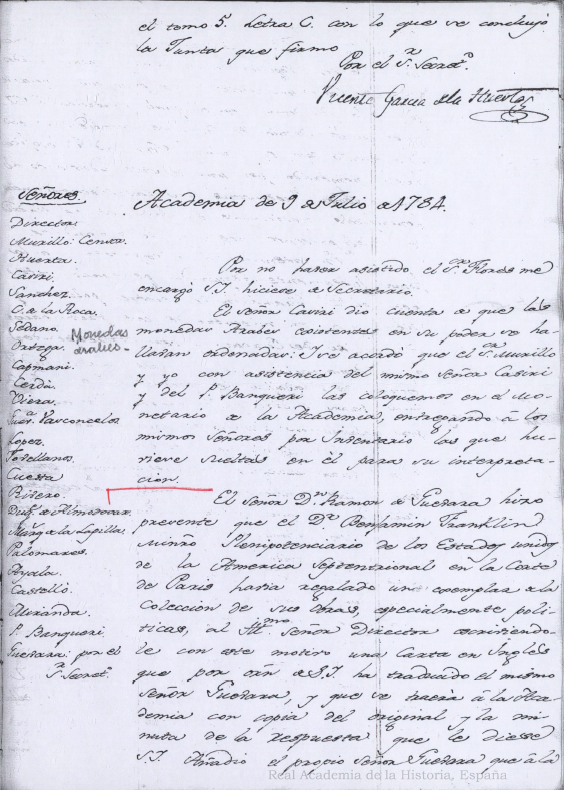 el tomo 5. Letra C. con lo que se concluyó
la Junta que firmo
Por el Sr. Secret.º
Vicente Garcia de la Huerta
Señores.
Director
Murillo: Censor.
Huerta.
Casiri.
Sanchez.
C. de la Roca.
Sedano.
Ortega.
Capmani.
Cerdà.
Viera.
Guev.ª Vasconcelos
Lopez.
Jovellanos.
Cuesta
Risero.
Duq. de Almodovar.
Marq. de la Lapilla.
Palomares.
Ayala.
Castelló.
Miranda.
P. Banqueri.
Guevara: por el
Sr. Secret.º
Monedas
arabes-
Academia de 9 de Julio de 1784.
Por no haver asistido el Sr. Flores me
encargó S.I. hiciese de Secretario.
El Señor Casiri dio cuenta de que las
monedas Arabes existentes en su poder se ha-
llavan ordenadas: I se acordó que el Sr. Murillo
y yo con asistencia del mismo Señor Casiri
y del P. Banqueri las coloquemos en el Mo-
netario de la Academia, entregando à los
mismos Señores por Inventario las que hu-
viese sueltas en èl para su interpreta-
cion.
El Señor Dn. Ramon de Guevara hizo
presente que el Dr. Benjamin Franklin
Minro. Plenipotenciario de los Estados unidos
de la America Septentrional en la Corte
de Paris havia regalado un exemplar de la
Coleccion de sus obras, especialmente poli-
ticas, al Ill.mo Señor Director escriviendo-
le con este motivo una Carta en Inglés
que por orn. de S.I. ha traducido el mismo
Señor Guevara, y que se traerà à la Aca-
demia con copia del original y la mi-
nuta de la respuesta que le diesse
S.I. Añadió el propio Señor Guevara que à la
Real Academia de la Historia, España